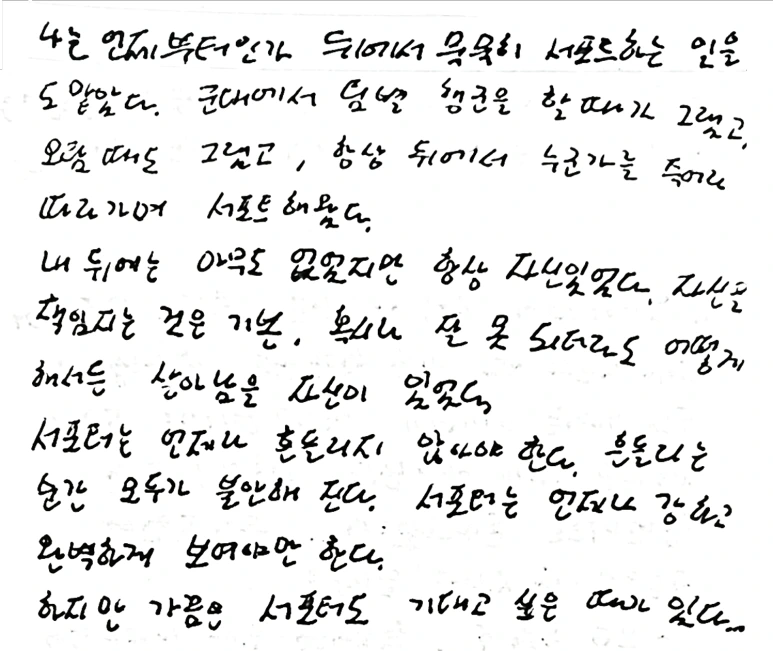 나는 언제부터인가 뒤에서 묵묵히 서포트하는 일을
도맡았다. 군대에서 텀벌 행군을 할 때가 그랬고,
오람 때도 그랬고, 항상 뒤에서 누군가를 죽어라
따라가며 서포트 해왔다.
내 뒤에는 아무도 없었지만 항상 자신있었다. 자신을
책임지는 것은 기본, 혹시나 잘 못 되더라도 어떻게
해서든 살아남을 자신이 있었다.
서포터는 언제나 흔들리지 않아야 한다. 흔들리는
순간 모두가 불안해 진다. 서포터는 언제나 강하고
완벽하게 보여야만 한다.
하지만 가끔은 서포터도 기대고 싶은 때가 있다...